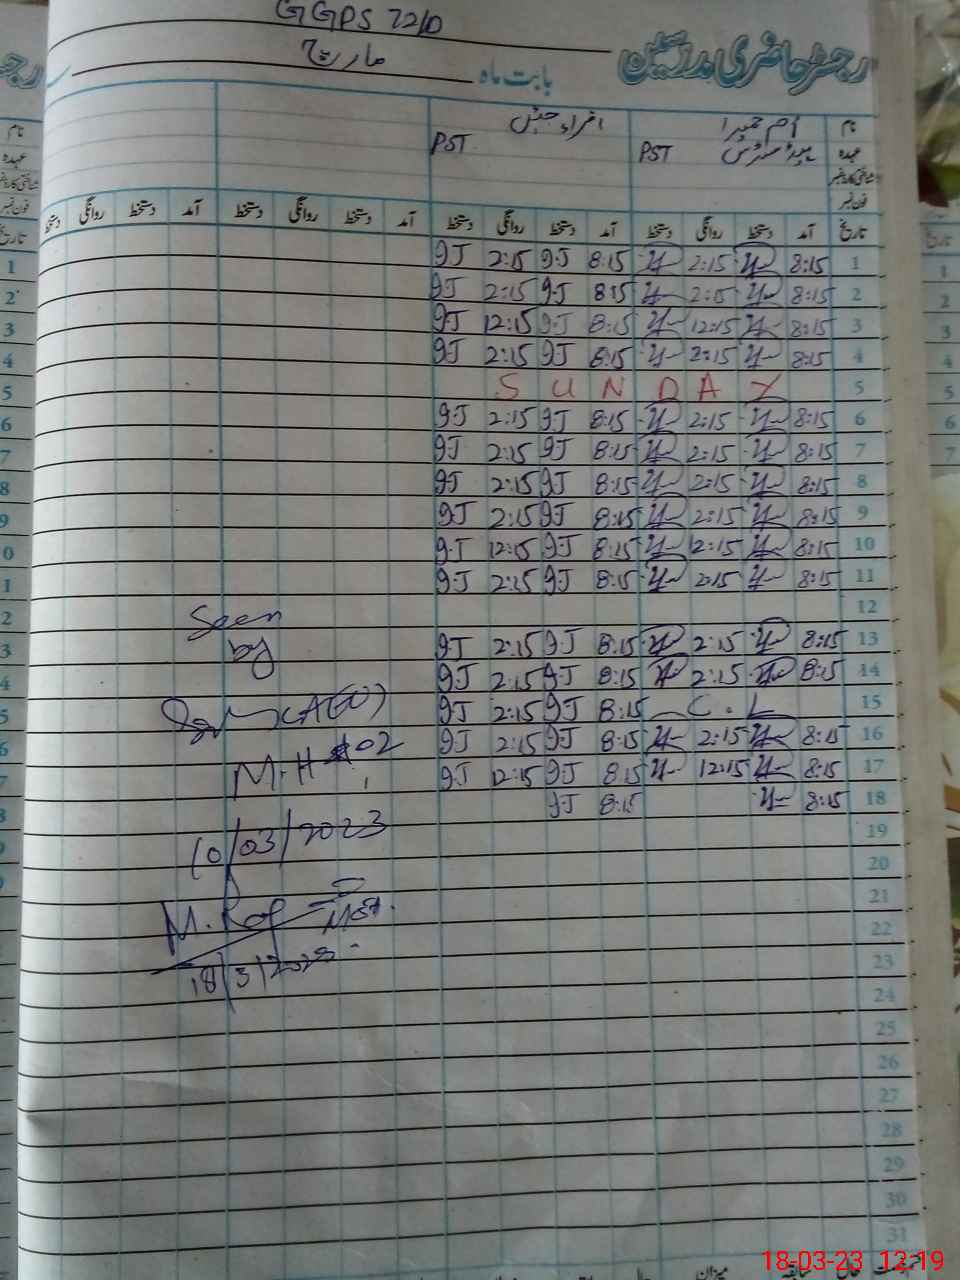 GGPS 72/D
رجسٹر حاضری مدرسین
بابت ماہ مارچ
نام ام حمیرا اقراء
عہدہ ہیڈ مسٹرس PST PST
شناختی کارڈ نمبر
فون نمبر
تاریخ آمد دستخط روانگی دستخط آمد دستخط روانگی دستخط آمد دستخط روانگی دستخط آمد دستخط روانگی دستخط
1 8:15 2:15 8:15 9J 2:15 9J
2 8:15 2:15 8:15 9J 2:15 9J
3 8:15 12:15 8:15 9J 12:15 9J
4 8:15 2:15 8:15 9J 2:15 9J
5 SUNDAY
6 8:15 2:15 8:15 9J 2:15 9J
7 8:15 2:15 8:15 9J 2:15 9J
8 8:15 2:15 8:15 9J 2:15 9J
9 8:15 2:15 8:15 9J 2:15 9J
10 8:15 12:15 8:15 9J 12:15 9J
11 8:15 2:15 8:15 9J 2:15 9J
12
13 8:15 2:15 8:15 9J 2:15 9J
14 8:15 2:15 8:15 9J 2:15 9J
15 C.L 8:15 9J 2:15 9J
16 8:15 2:15 8:15 9J 2:15 9J
17 8:15 12:15 8:15 9J 12:15 9J
18 8:15 8:15 9J
19
20
21
22
23
24
25
26
27
28
29
30
31
Seen
by
(AEO)
M.H #02
10/03/2023
M.
18/3/2023
میزان سابقہ حال
18-03-23 12:19